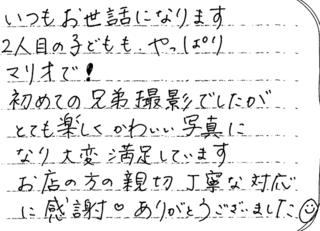 いつもお世話になります
2人目の子どもも、やっぱり
マリオで!
初めての兄弟撮影でしたが
とても楽しくかわいい写真に
なり大変満足しています
お店の方の親切丁寧な対応
に感謝♡ありがとうございました☺